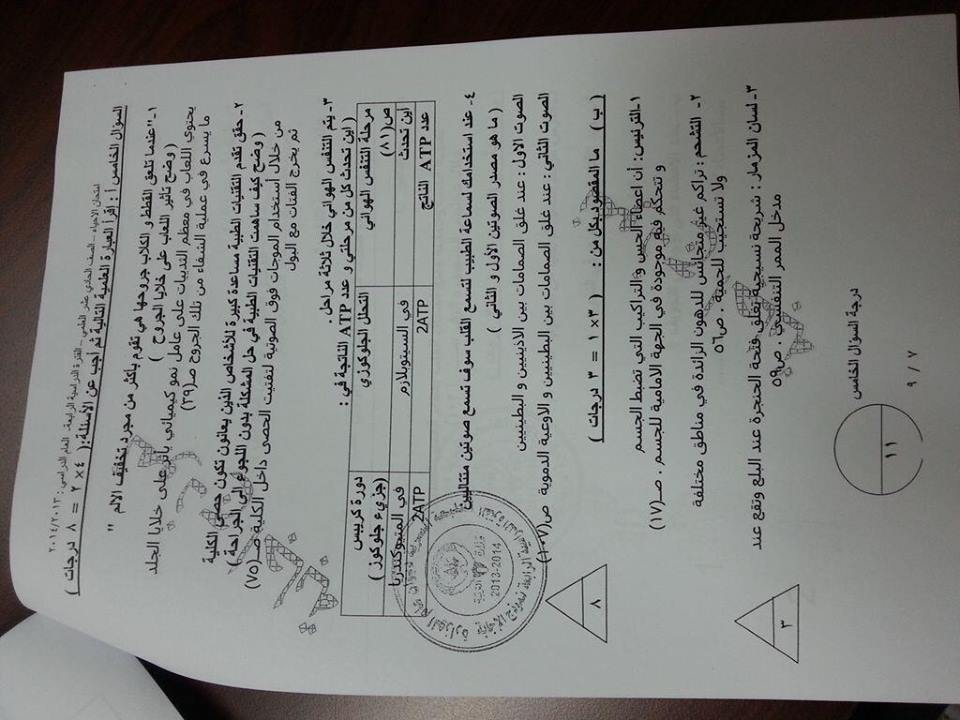 امتحان الأحياء – الصف الحادي عشر العلمي – الفترة الدراسية الرابعة – العام الدراسي : ٢٠١٤/٢٠١٣
السؤال الخامس : اقرأ العبارة العلمية التالية ثم أجب عن الأسئلة:( ٤ × ٢ = ٨ درجات )
١- "عندما تلعق القطط و الكلاب جروحها هي تقوم بأكثر من مجرد تخفيف الألم "
( وضح تأثير اللعاب على خلايا الجروح )
يحتوي اللعاب في معظم الثدييات على عامل نمو كيميائي يأثر على خلايا الجلد
ما يسرع في عملية الشفاء من تلك الجروح صـ(٢٩)
٢- حقق تقدم التقنيات الطبية مساعدة كبيرة للأشخاص الذين يعانون تكون حصى الكلية
( وضح كيف ساهمت التقنيات الطبية في حل المشكلة بدون اللجوء إلى الجراحة )
من خلال أستخدام الموجات فوق الصوتية لتفتيت الحصى داخل الكلية صـ(٧٥)
ثم يخرج الفتات مع البول
٣- يتم التنفس الهوائي خلال ثلاثة مراحل .
( اين تحدث كل من مرحلتي و عدد ATP الناتجة في :
مرحلة التنفس الهوائي التحلل الجلوكوزي دورة كريبس ( جزيء جلوكوز )
اين تحدث ص(٨١) في السيتوبلازم في الميتوكندريا
عدد ATP الناتج 2ATP 2ATP
٤- عند استخدامك لسماعة الطبيب لتسمع القلب سوف تسمع صوتين متتاليين
( ما هو مصدر الصوتين الأول و الثاني )
الصوت الاول : عند غلق الصمامات بين الاذينيين و البطينيين
الصوت الثاني : عند غلق الصمامات بين البطينيين و الاوعية الدموية
( ب ) ما المقصود بكل من : ( ٣×١ = ٣ درجات )
١-الترئيس : أن اعضاء الحس و التراكيب التي تضبط الجسم
و تتحكم فيه موجودة في الجهة الامامية للجسم . صـ(١٧)
٢- التشحم : تراكم غير متجانس للدهون الزائدة في مناطق مختلفة
ولا تستجيب للحمية . ص٥٦
٣- لسان المزمار : شريحة نسيجية تغلق فتحة الحنجرة عند البلع وتقع عند
مدخل الممر التنفسي . ص٥٩
٨
٣
درجة السؤال الخامس
١١
٧ / ٩
2013-2014